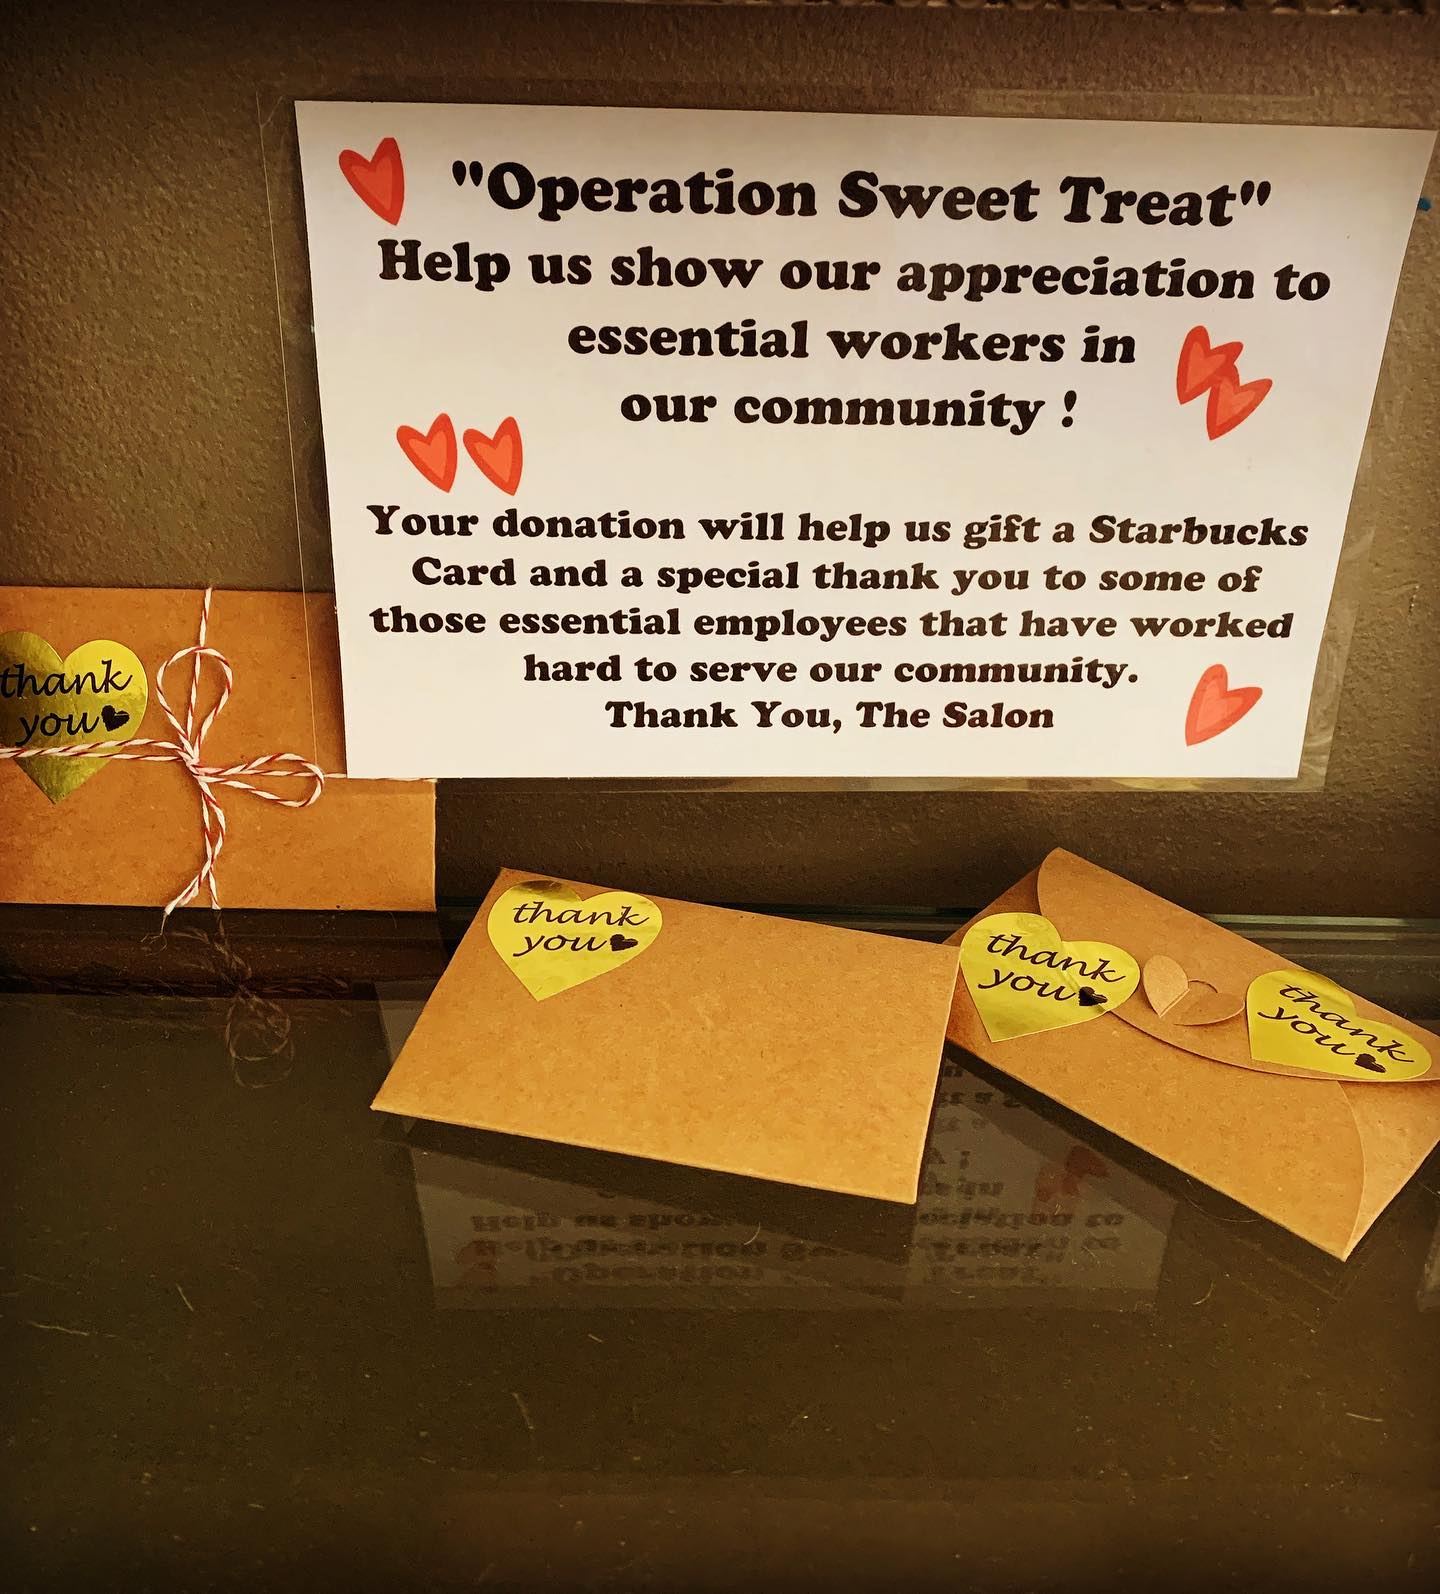 "Operation Sweet Treat"
Help us show our appreciation to
essential workers in
our community !
Your donation will help us gift a Starbucks
Card and a special thank you to some of
those essential employees that have worked
hard to serve our community.
Thank You, The Salon
thank
you
thank
you
thank
you
thank
you